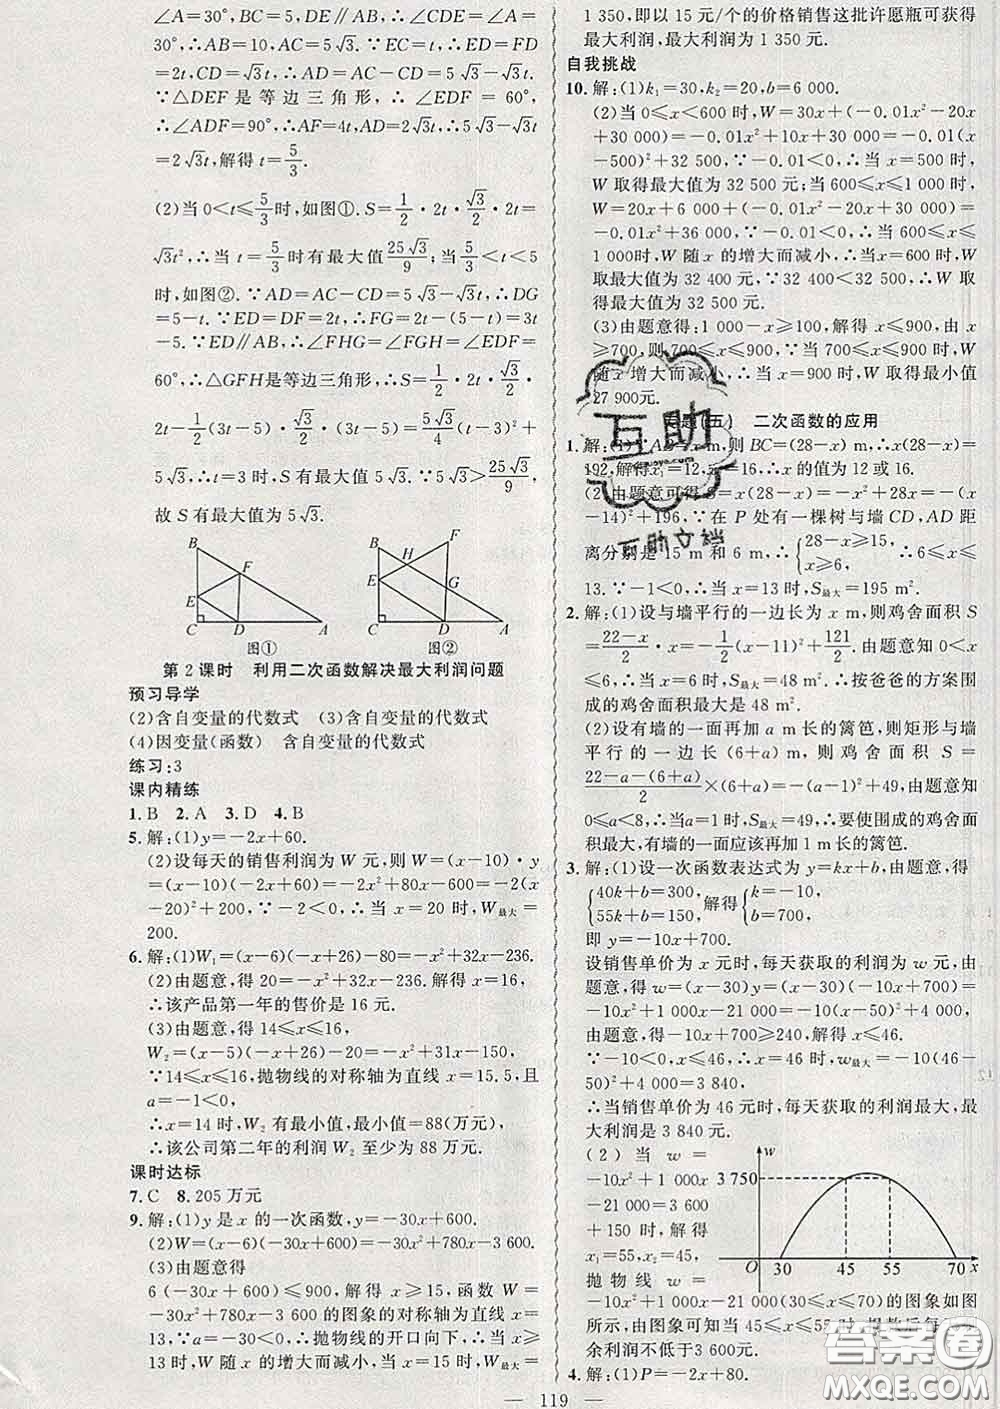 ∠A=30°,∴BC=5.∵DE∥AB,∴∠CDE=∠A=
30°.∴AB=10,AC=5√3.∵EC=t,∴DE=ED=FD
=2t,CD=√3t,∴AD=AC-CD=5√3-√3t.∵
∵△DEF是等边三角形,∴∠EDF=60°,
∴∠ADF=90°,∴AF=4t,AD=2√3t,∴5√3-√3t
=2√3t,解得t=5/3.
(2)当0<t≤5/3时,如图①.S=1/2·2t·√3/2·2t=
√3t²,∴当t=5/3时有最大值25√3/9;当5/3<t<5
时,如图②.∵AD=AC-CD=5√3-√3t,∴DG
=5-t.∵ED=DF=2t,∴FG=2t-(5-t)=3t
-5.∵ED∥AB,∴∠FHG=∠FGH=∠EDF=
60°,∴△GFH是等边三角形,∴S=1/2·2t·√3/2·
2t-1/2(3t-5)·√3/2(3t-5)=-5√3/4(t-3)²+
5√3,∴当t=3时,S有最大值5√3.∵5√3>25√3/9,
故S有最大值为5√3.
B F E C D A 图①
B H F E G C D A 图②
第2课时 利用二次函数解决最大利润问题
预习导学
(2)含自变量的代数式 (3)含自变量的代数式
(4)因变量(函数) 含自变量的代数式
练习:3
课内精练
1.B 2.A 3.D 4.B
5.解:(1)y=-2x+60.
(2)设每天的销售利润为W元,则W=(x-10)·y
=(x-10)(-2x+60)=-2x²+80x-600=-2(x
-20)²+200,∵-2<0,∴当x=20时,W最大=
200.
6.解:(1)W₁=(x-6)(-x+26)-80=-x²+32x-236.
(2)由题意,得20=-x²+32x-236.解得x=16,
∴该产品第一年的售价是16元.
(3)由题意,得14≤x≤16,
W₂=(x-5)(-x+26)-20=-x²+31x-150,
∵14≤x≤16,抛物线的对称轴为直线x=15.5,且
a=-1<0,
∴x=14时,W₂有最小值,最小值=88(万元),
∴该公司第二年的利润W₂至少为88万元.
课时达标
7.C 8.205万元
9.解:(1)y是x的一次函数,y=-30x+600.
(2)W=(x-6)(-30x+600)=-30x²+780x-3 600.
(3)由题意得
6(-30x+600)≤900,解得x≥15,函数W=
-30x²+780x-3 600的图象的对称轴为直线x=
13,∵a=-30<0,∴抛物线的开口向下,当x≥
13时,W随x的增大而减小,当x=15时,W最大=
1 350,即以15元/个的价格销售这批许愿瓶可获得
最大利润,最大利润为1 350元.
自我挑战
10.解:(1)k₁=30,k₂=20,b=6 000.
(2)当0≤x<600时,W=30x+(-0.01x²-20x
+30 000)=-0.01x²+10x+30 000=-0.01(x
-500)²+32 500,∵-0.01<0,∴当x=500时,
W取得最大值为32 500元;当600≤x≤1 000时,
W=20x+6 000+(-0.01x²-20x+30 000)=
-0.01x²+36 000,∵-0.01<0,∴当600≤x≤
1 000时,W随x的增大而减小,∴当x=600时,W
取最大值为32 400元,∵32 400<32 500,∴W取
得最大值为32 500元.
(3)由题意得:1 000-x≥100,解得x≤900,由x
≥700,则700≤x≤900,∵700≤x≤900时,W
随x增大而减小,∴当x=900时,W取得最小值
27 900元.
专题(五) 二次函数的应用
1.解:(1)∵AB=x m,则BC=(28-x) m,∴x(28-x)=
192,解得x₁=12,x₂=16,∴x的值为12或16.
(2)由题意可得S=x(28-x)=-x²+28x=-(x
-14)²+196,∵在P处有一棵树与墙CD,AD距
离分别是15 m和6 m,∴{28-x≥15, x≥6, ∴6≤x≤
13.∵-1<0,∴当x=13时,S最大=195 m².
2.解:(1)设与墙平行的一边长为x m,则鸡舍面积S
=22-x/2·x=-1/2(x-11)²+121/2,由题意知0<x
≤8,∴当x=8时,S最大=48 m²,∴按爸爸的方案围
成的鸡舍面积最大是48 m².
(2)设有墙的一面再加a m长的篱笆,则矩形与墙
平行的一边长(6+a) m,则鸡舍面积S=
22-a-(6+a)/2×(6+a)=-(a-1)²+49,由题意知
0≤a<8,∴当a=1时,S最大=49,∴要使围成的鸡舍面
积最大,有墙的一面应该再加1 m长的篱笆.
3.解:(1)设一次函数表达式为y=kx+b,由题意,得
{40k+b=300, 55k+b=150, 解得{k=-10, b=700,
即y=-10x+700.
设销售单价为x元时,每天获取的利润为w元,由
题意,得w=(x-30)y=(x-30)(-10x+700)=
-10x²+1 000x-21 000=-10(x-50)²+4 000,
由题意,得-10x+700≥240,解得x≤46.
∵-10<0,x≤46,∴当x=46时,w最大=-10×
(46-50)²+4 000=3 840,
∴当销售单价为46元时,每天获取的利润最大,最
大利润是3 840元.
(2)当w=
-10x²+1 000x
-21 000=3 600
+150时,解得
x₁=55,x₂=45,
抛物线w=
-10x²+1 000x-21 000(30≤x≤70)的图象如图
所示,由图象可知当45≤x≤55时,捐款后每天剩
余利润不低于3 600元.
w 3 750 O 30 45 55 70 x
4.解:(1)P=-2x+80.
119
互助
互助文档
答案圈
MXQE.COM